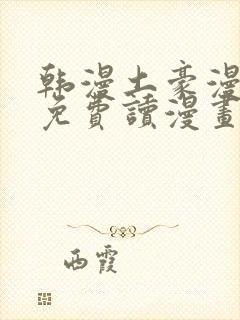 韩漫土豪漫
免費讀漫畫
西霞